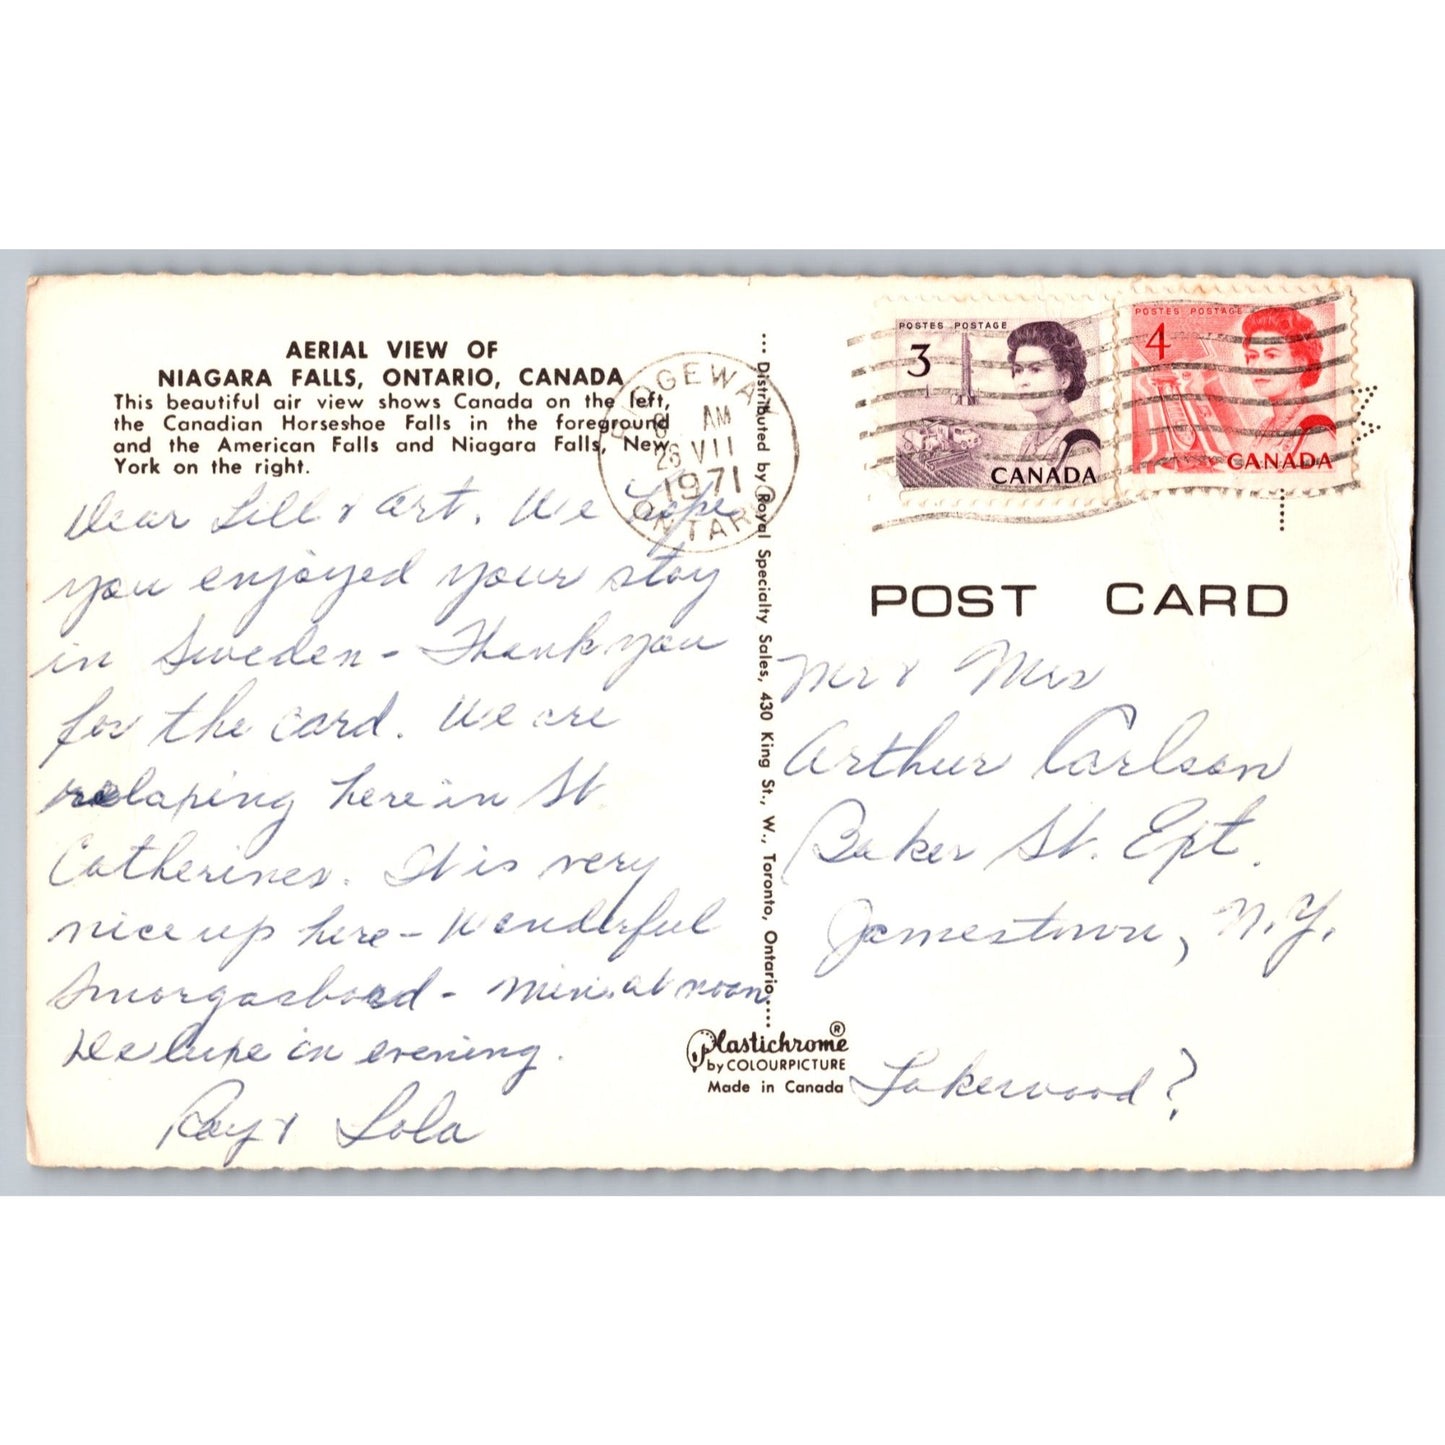 AERIAL VIEW OF
NIAGARA FALLS, ONTARIO, CANADA
This beautiful air view shows Canada on the left,
the Canadian Horseshoe Falls in the foreground
and the American Falls and Niagara Falls, New
York on the right.
Dear Lill & Art. We hope
you enjoyed your stay
in Sweden - Thank you
for the card. We are
relaxing here in St.
Catherines. It is very
nice up here - Wonderful
Smorgasboard - Mini at noon
Deluxe in evening.
Ray & Lola
RIDGEWAY
8 AM
26 VII
1971
ONTARIO
Distributed by Royal Specialty Sales, 430 King St., W., Toronto, Ontario
Plastichrome ®
by COLOURPICTURE
Made in Canada
POSTES POSTAGE
3
CANADA
POSTES POSTAGE
4
CANADA
POST CARD
Mr & Mrs
Arthur Carlson
Baker St. Ept.
Jamestown, N.Y.
Lakewood?